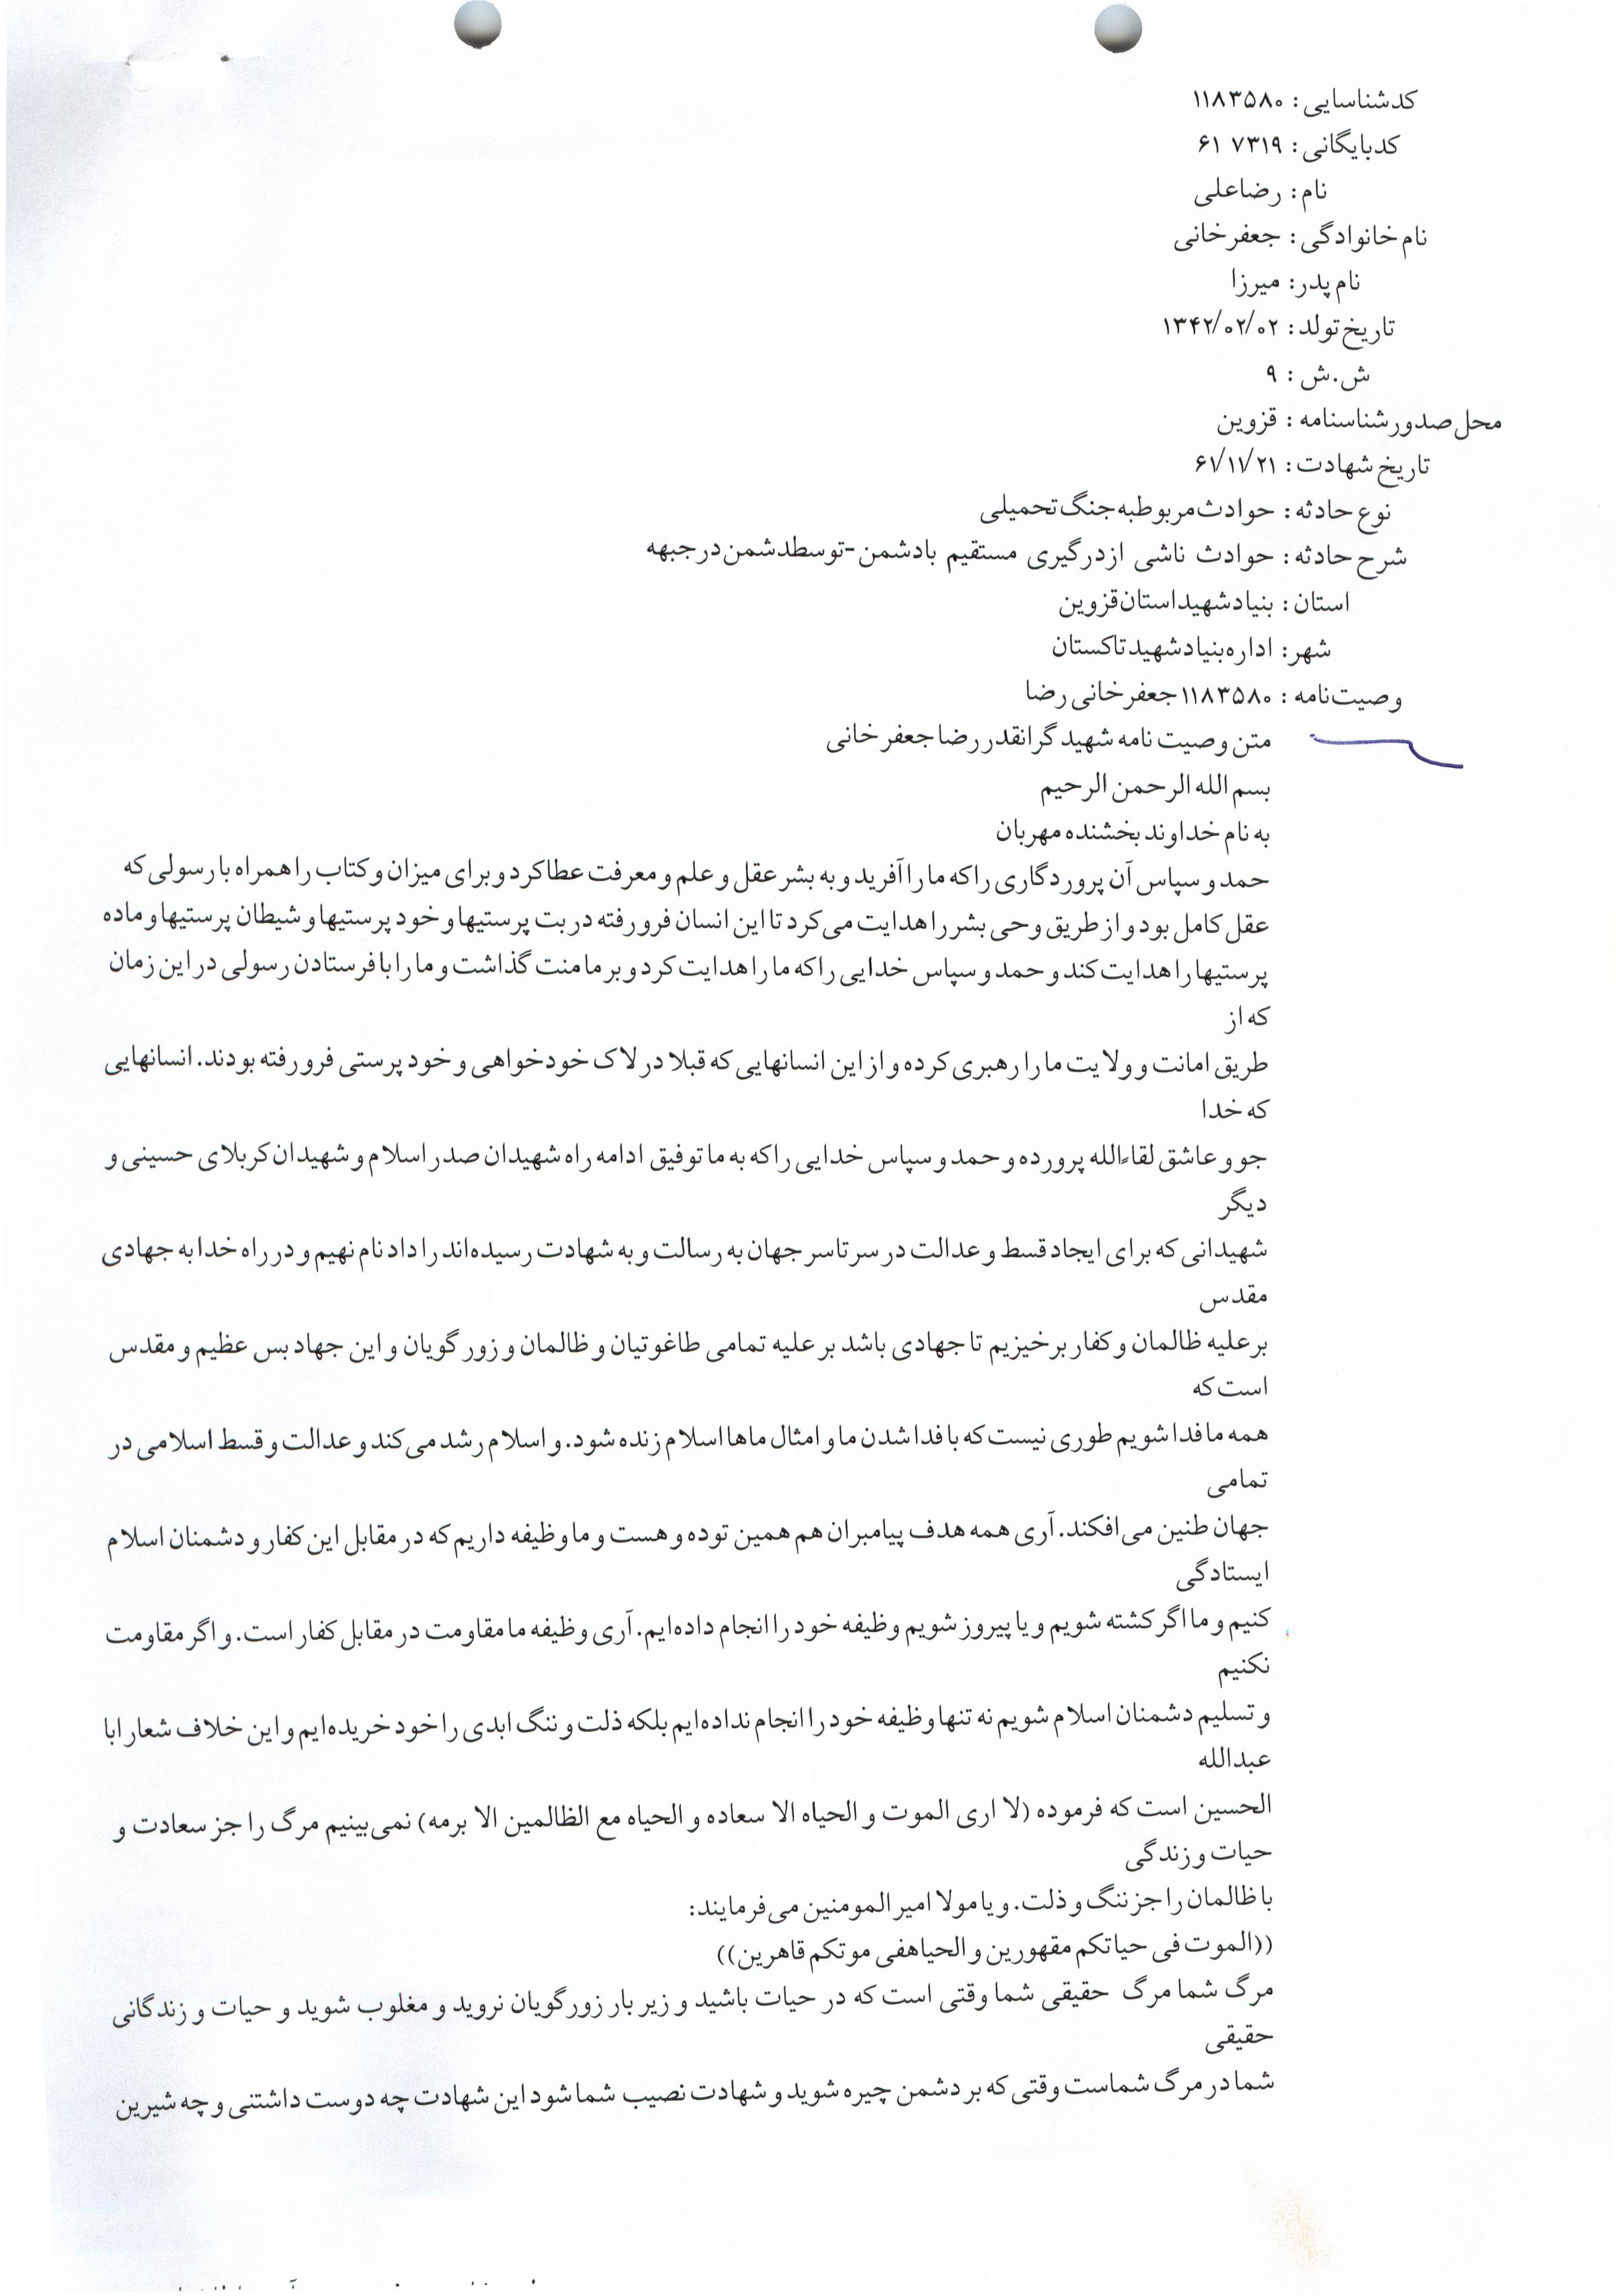 کدشناسایی: ۱۱۸۳۵۸۰
کدبایگانی: ۷۳۱۹ ۶۱
نام: رضاعلی
نام خانوادگی: جعفرخانی
نام پدر: میرزا
تاریخ تولد: ۱۳۴۲/۰۲/۰۲
ش.ش: ۹
محل صدورشناسنامه: قزوین
تاریخ شهادت: ۶۱/۱۱/۲۱
نوع حادثه: حوادث مربوطبه جنگ تحمیلی
شرح حادثه: حوادث ناشی ازدرگیری مستقیم بادشمن-توسطدشمن درجبهه
استان: بنیادشهیداستان قزوین
شهر: اداره بنیادشهیدتاکستان
وصیت نامه: ۱۱۸۳۵۸۰جعفرخانی رضا
متن وصیت نامه شهید گرانقدر رضا جعفرخانی
بسم الله الرحمن الرحیم
به نام خداوند بخشنده مهربان
حمد و سپاس آن پروردگاری را که ما را آفرید و به بشر عقل و علم و معرفت عطا کرد و برای میزان و کتاب را همراه با رسولی که
عقل کامل بود و از طریق وحی بشر را هدایت می‌کرد تا این انسان فرو رفته در بت پرستیها و خود پرستیها و شیطان پرستیها و ماده
پرستیها را هدایت کند و حمد و سپاس خدایی را که ما را هدایت کرد و بر ما منت گذاشت و ما را با فرستادن رسولی در این زمان
که از
طریق امانت و ولایت ما را رهبری کرده و از این انسانهایی که قبلا در لاک خودخواهی و خود پرستی فرو رفته بودند. انسانهایی
که خدا
جو و عاشق لقاءالله پرورده و حمد و سپاس خدایی را که به ما توفیق ادامه راه شهیدان صدر اسلام و شهیدان کربلای حسینی و
دیگر
شهیدانی که برای ایجاد قسط و عدالت در سرتاسر جهان به رسالت و به شهادت رسیده‌اند را داد نام نهیم و در راه خدا به جهادی
مقدس
بر علیه ظالمان و کفار برخیزیم تا جهادی باشد بر علیه تمامی طاغوتیان و ظالمان و زورگویان و این جهاد بس عظیم و مقدس
است که
همه ما فدا شویم طوری نیست که با فدا شدن ما و امثال ماها اسلام زنده شود. و اسلام رشد می‌کند و عدالت و قسط اسلامی در
تمامی
جهان طنین می‌افکند. آری همه هدف پیامبران هم همین توده و هست و ما وظیفه داریم که در مقابل این کفار و دشمنان اسلام
ایستادگی
کنیم و ما اگر کشته شویم و یا پیروز شویم وظیفه خود را انجام داده‌ایم. آری وظیفه ما مقاومت در مقابل کفار است. و اگر مقاومت
نکنیم
و تسلیم دشمنان اسلام شویم نه تنها وظیفه خود را انجام نداده‌ایم بلکه ذلت و ننگ ابدی را خود خریده‌ایم و این خلاف شعار ابا
عبدالله
الحسین است که فرموده (لا اری الموت و الحیاه الا سعاده و الحیاه مع الظالمین الا برمه) نمی‌بینیم مرگ را جز سعادت و
حیات و زندگی
با ظالمان را جز ننگ و ذلت. و یا مولا امیر المومنین می‌فرمایند:
((الموت فی حیاتکم مقهورین و الحیاهفی موتکم قاهرین))
مرگ شما مرگ حقیقی شما وقتی است که در حیات باشید و زیر بار زورگویان نروید و مغلوب شوید و حیات و زندگانی
حقیقی
شما در مرگ شماست وقتی که بر دشمن چیره شوید و شهادت نصیب شما شود این شهادت چه دوست داشتنی و چه شیرین